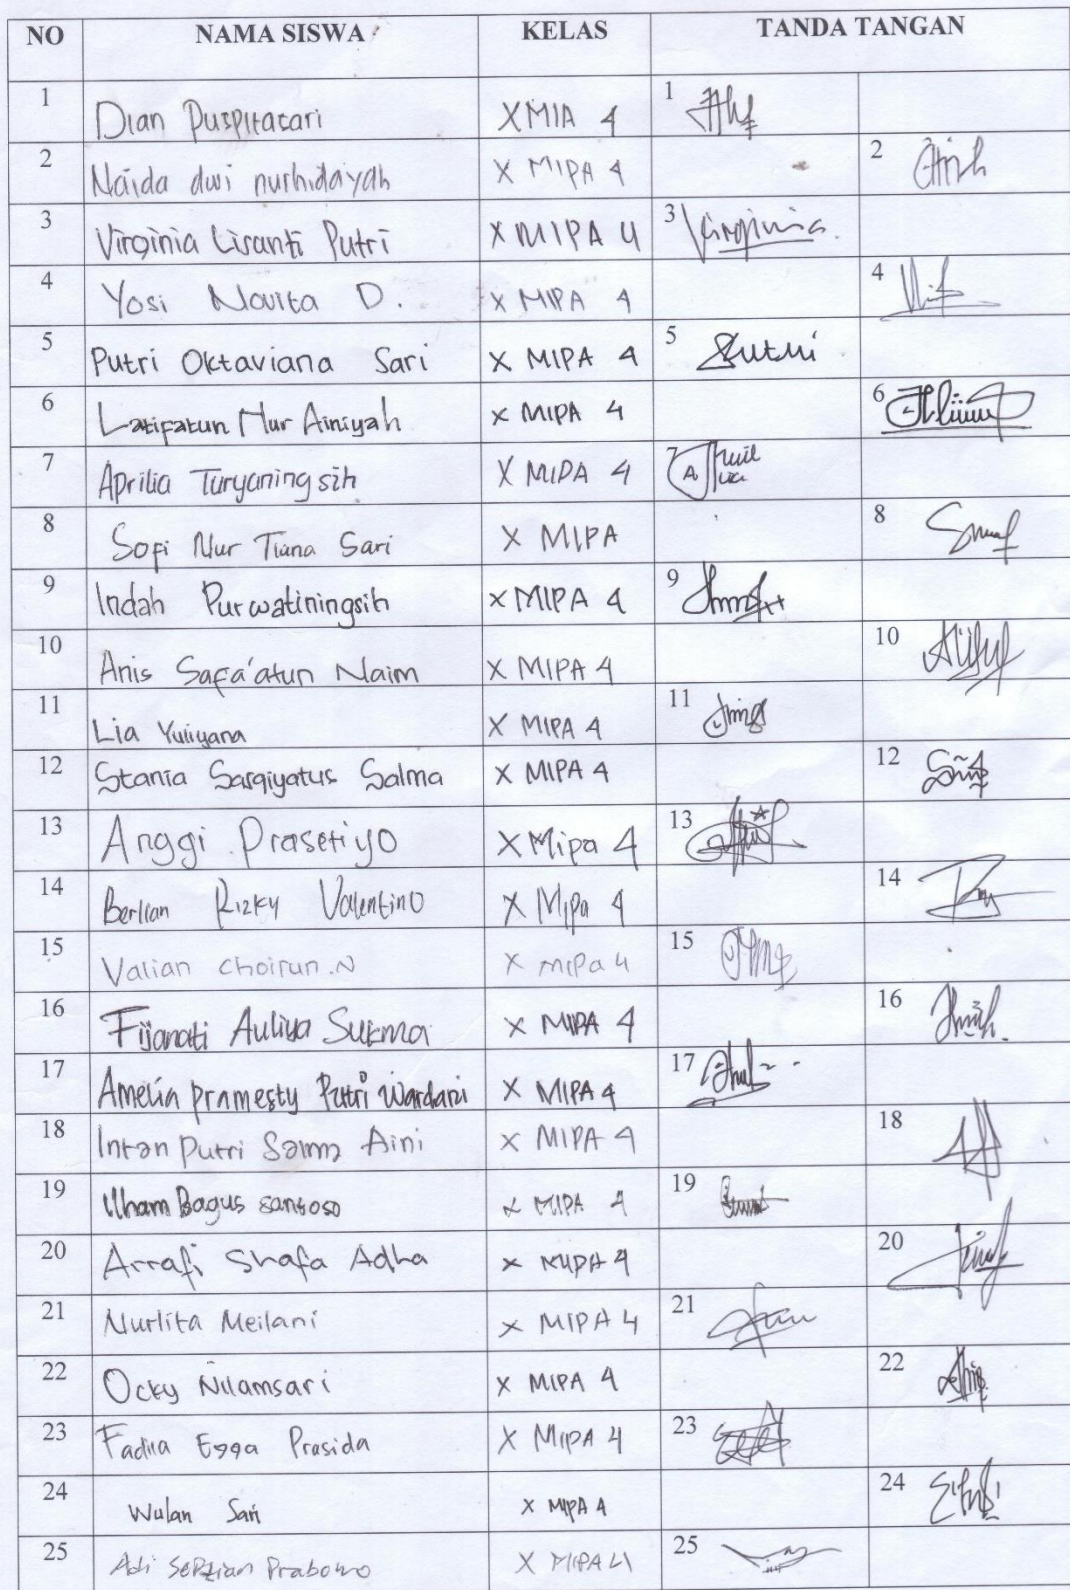 NO NAMA SISWA KELAS TANDA TANGAN
1 Dian Puspitasari X MIA 4 1
2 Naida dwi nurhidayah X MIPA 4 2
3 Virginia Lisanti Putri X MIPA 4 3 Virginia
4 Yosi Novita D. X MIPA 4 4
5 Putri Oktaviana Sari X MIPA 4 5 Putri
6 Latifatun Nur Ainiyah X MIPA 4 6
7 Aprilia Turyaningsih X MIPA 4 7
8 Sofi Nur Tiana Sari X MIPA 8
9 Indah Purwatiningsih X MIPA 4 9
10 Anis Safa'atun Naim X MIPA 4 10
11 Lia Yuliyana X MIPA 4 11
12 Stania Sasqiyatus Salma X MIPA 4 12
13 Anggi Prasetiyo X Mipa 4 13
14 Berlian Rizky Valentino X Mipa 4 14
15 Valian choirun.N X mipa 4 15
16 Fijanati Auliya Sukma X MIPA 4 16
17 Amelia pramesty Putri Wardani X MIPA 4 17
18 Intan Putri Salma Aini X MIPA 4 18
19 Ilham Bagus santoso X MIPA 4 19
20 Arrafi Shafa Adha X MIPA 4 20
21 Nurlita Meilani X MIPA 4 21
22 Ocky Nilamsari X MIPA 4 22
23 Fadila Egga Prasida X MIPA 4 23
24 Wulan Sari X MIPA 4 24
25 Adi Septian Prabowo X MIPA 4 25